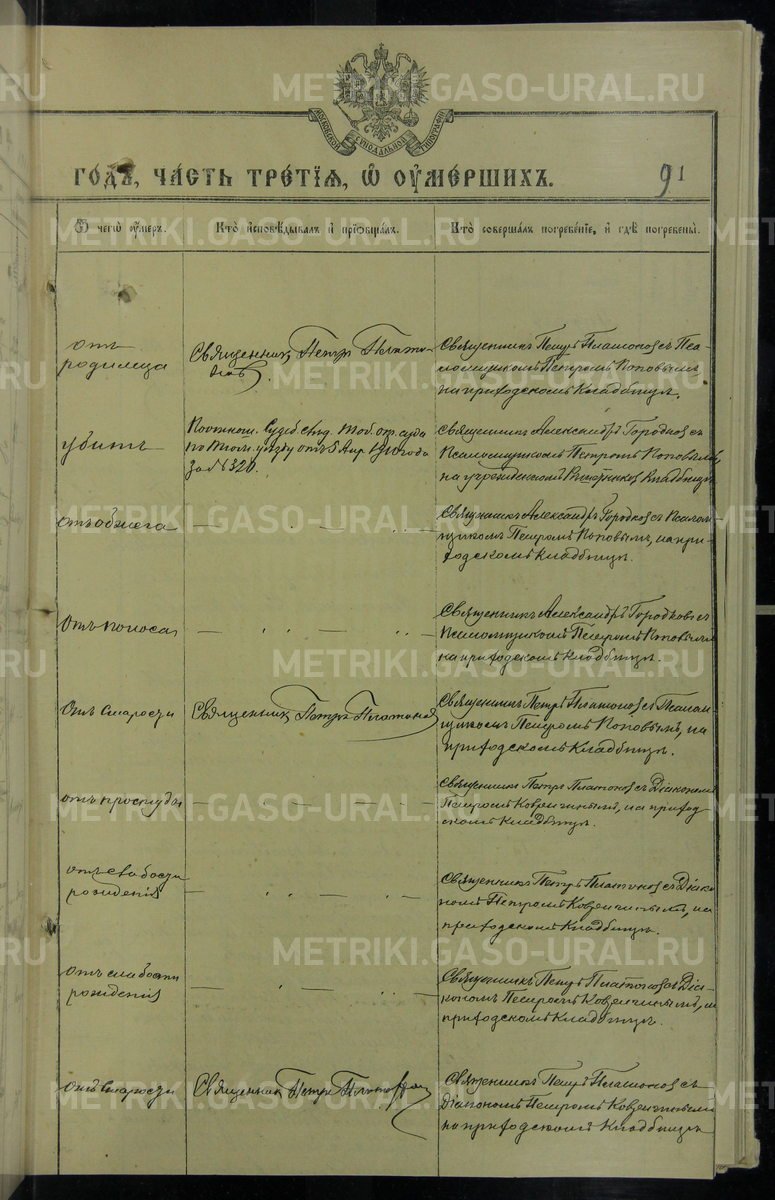 МОСКОВСКОЙ СѴНОДАЛЬНОЙ ТИПОГРАФІИ
ГОДЪ, ЧАСТЬ ТРЕТІЯ, Ѡ ОУМЕРШИХЪ.
91
Ѿ чегѡ оумеръ.
Кто исповѣдывалъ и прїобщалъ.
Кто совершалъ погребенїе, и гдѣ погребены.
отъ
родимца
Священникъ Петръ Плато-
новъ.
Священникъ Петръ Платоновъ съ Пса-
ломщикомъ Петромъ Поповымъ
на приходскомъ кладбищѣ.
убитъ
Судеб. слѣд. Тоб. окр. суда
по уѣзду отъ 5 Апр. 1910 года
за № 320.
Священникъ Александръ Городковъ съ
Псаломщикомъ Петромъ Поповымъ,
на кладбищѣ
отъ ожега
— " — "
Священникъ Александръ Городковъ съ Псалом-
щикомъ Петромъ Поповымъ, на при-
ходскомъ кладбищѣ.
отъ поноса
— " — "
Священникъ Александръ Городковъ съ
Псаломщикомъ Петромъ Поповымъ
на приходскомъ кладбищѣ.
отъ старости
Священникъ Петръ Платоновъ
Священникъ Петръ Платоновъ съ Псалом-
щикомъ Петромъ Поповымъ, на
приходскомъ кладбищѣ.
отъ простуды
— — — —
Священникъ Петръ Платоновъ съ Діакономъ
Петромъ на приход-
скомъ кладбищѣ.
отъ слабости
рожденія
— " — "
Священникъ Петръ Платоновъ съ Діако-
номъ Петромъ на
приходскомъ кладбищѣ.
отъ слабости
рожденія
— " — "
Священникъ Петръ Платоновъ съ Діа-
кономъ Петромъ на
приходскомъ кладбищѣ.
отъ старости
Священникъ Петръ Платоновъ
Священникъ Петръ Платоновъ съ
Діакономъ Петромъ
на приходскомъ кладбищѣ
METRIKI.GASO-URAL.RU